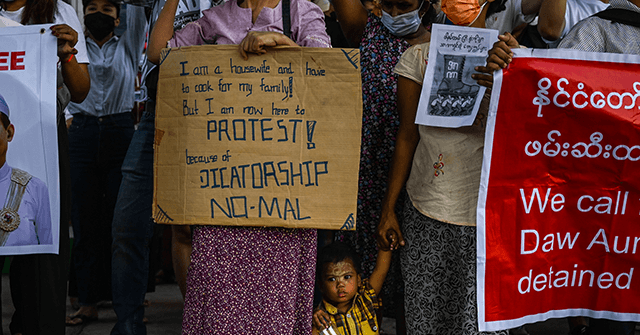 EE
I am a housewife and have
to cook for my family!
But I am now here to
PROTEST!
because of
DICATORSHIP
NO-MAL
နိုင်ငံတော်
ဖမ်းဆီးထ
We call
Daw Aun
detained